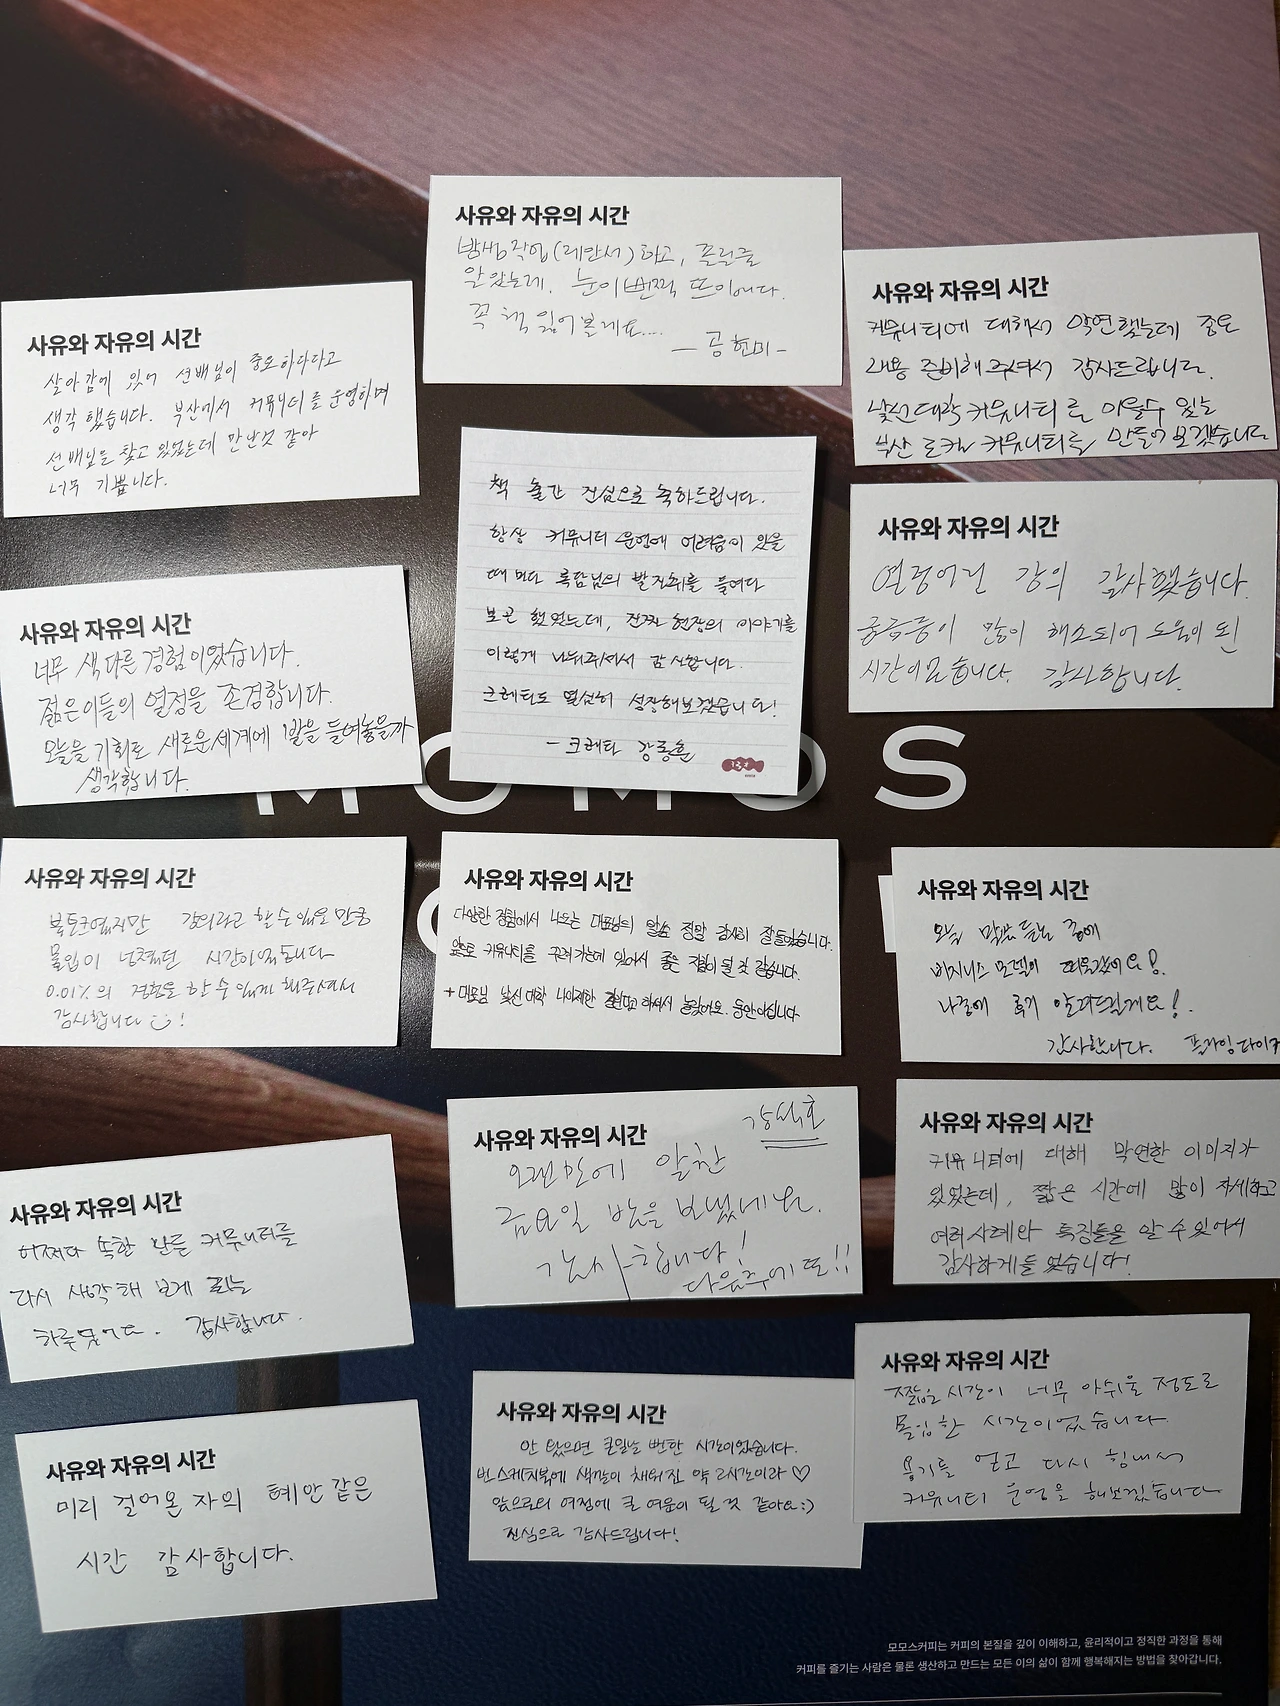 사유와 자유의 시간
밤샘작업(레안서)하고, 졸릴줄
알았는데, 눈이 번쩍 뜨이네다.
꼭 책 읽어볼게요....
- 공현미 -
사유와 자유의 시간
커뮤니티에 대해서 막연했는데 좋은
내용 준비해주셔서 감사드립니다.
낯선대학 커뮤니티를 이을수 있는
부산 로컬 커뮤니티를 만들어보겠습니다
사유와 자유의 시간
살아감에 있어 선배님이 중요하다고
생각 했습니다. 부산에서 커뮤니티를 운영하며
선배님을 찾고 있었는데 만난것 같아
너무 기쁩니다.
책 출간 진심으로 축하드립니다.
항상 커뮤니티 운영에 어려움이 있을
때마다 록담님의 발자취를 들여다
보곤 했었는데, 진짜 현장의 이야기를
이렇게 나눠주셔서 감사합니다.
크레타도 열심히 성장해보겠습니다!
- 크레타 강동훈
사유와 자유의 시간
열정어린 강의 감사했습니다.
궁금증이 많이 해소되어 도움이 된
시간이었습니다. 감사합니다.
사유와 자유의 시간
너무 색다른 경험이었습니다.
젊은이들의 열정을 존경합니다.
오늘을 기회로 새로운세계에 1발을 들여놓을까
생각합니다.
MOMOS
사유와 자유의 시간
북토크였지만 강의라고 할 수 있을 만큼
몰입이 넘쳤던 시간이었습니다
0.01%의 경험을 할 수 있게 해주셔서
감사합니다 !
사유와 자유의 시간
다양한 경험에서 나오는 대표님의 말씀 정말 감사히 잘들었습니다.
앞으로 커뮤니티를 꾸려가는데 있어서 좋은 접점이 될 것 같습니다.
+ 대표님 낯선대학 나이제한 걸린다고 하셔서 놀랐어요. 동안이십니다
사유와 자유의 시간
오늘 막상 듣는 중에
비지니스 모델이 떠올랐어요!
나중에 후기 알려드릴게요!
감사합니다. 프라임다이커
사유와 자유의 시간
강석호
오랜만에 알찬
금요일 밤을 보냈네요.
감사합니다!
다음주에 또!!
사유와 자유의 시간
커뮤니티에 대해 막연한 이미지가
있었는데, 짧은 시간에 많이 자세하고
여러 사례와 특징들을 알 수 있어서
감사하게 들었습니다!
사유와 자유의 시간
어쩌다 속한 모든 커뮤니티를
다시 생각해 보게 되는
하루였어요. 감사합니다.
사유와 자유의 시간
짧은 시간이 너무 아쉬울 정도로
몰입한 시간이었습니다
용기를 얻고 다시 힘내서
커뮤니티 운영을 해보겠습니다
사유와 자유의 시간
안 왔으면 큰일날 뻔한 시간이었습니다.
빈 스케치북에 색깔이 채워진 약 2시간이라 ♡
앞으로의 여정에 큰 여운이 될 것 같아요:)
진심으로 감사드립니다!
사유와 자유의 시간
미리 걸어온 자의 혜안 같은
시간 감사합니다.
모모스커피는 커피의 본질을 깊이 이해하고, 윤리적이고 정직한 과정을 통해
커피를 즐기는 사람은 물론 생산하고 만드는 모든 이의 삶이 함께 행복해지는 방법을 찾아갑니다.